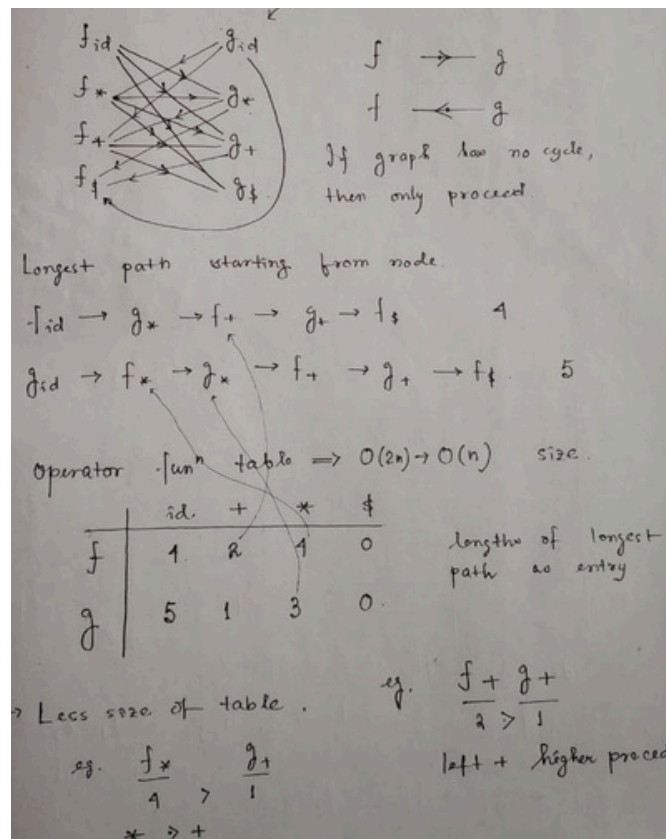 f id g id
f * g *
f + g +
f $ g $
f → g
f ← g
If graph has no cycle,
then only proceed.
Longest path starting from node.
f id → g * → f + → g + → f $ 4
g id → f * → g * → f + → g + → f $ 5
Operator funⁿ table ⇒ O(2n) → O(n) size.
id. + * $
f 4 2 4 0
g 5 1 3 0
lengths of longest
path as entry
→ Less size of table.
eg. f * g +
4 > 1
* > +
eg. f + g +
2 > 1
left + higher preced